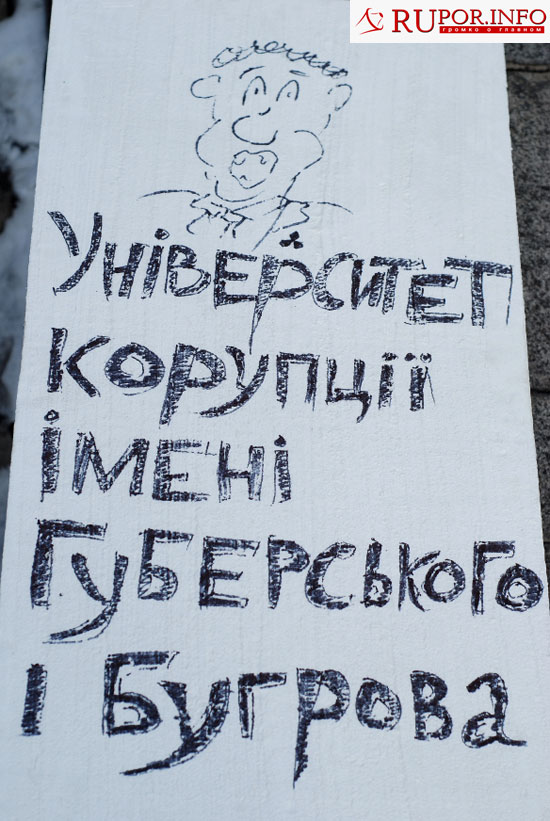 RUPOR.INFO
громко о главном
Університет
корупції
імені
Губерського
і Бугрова